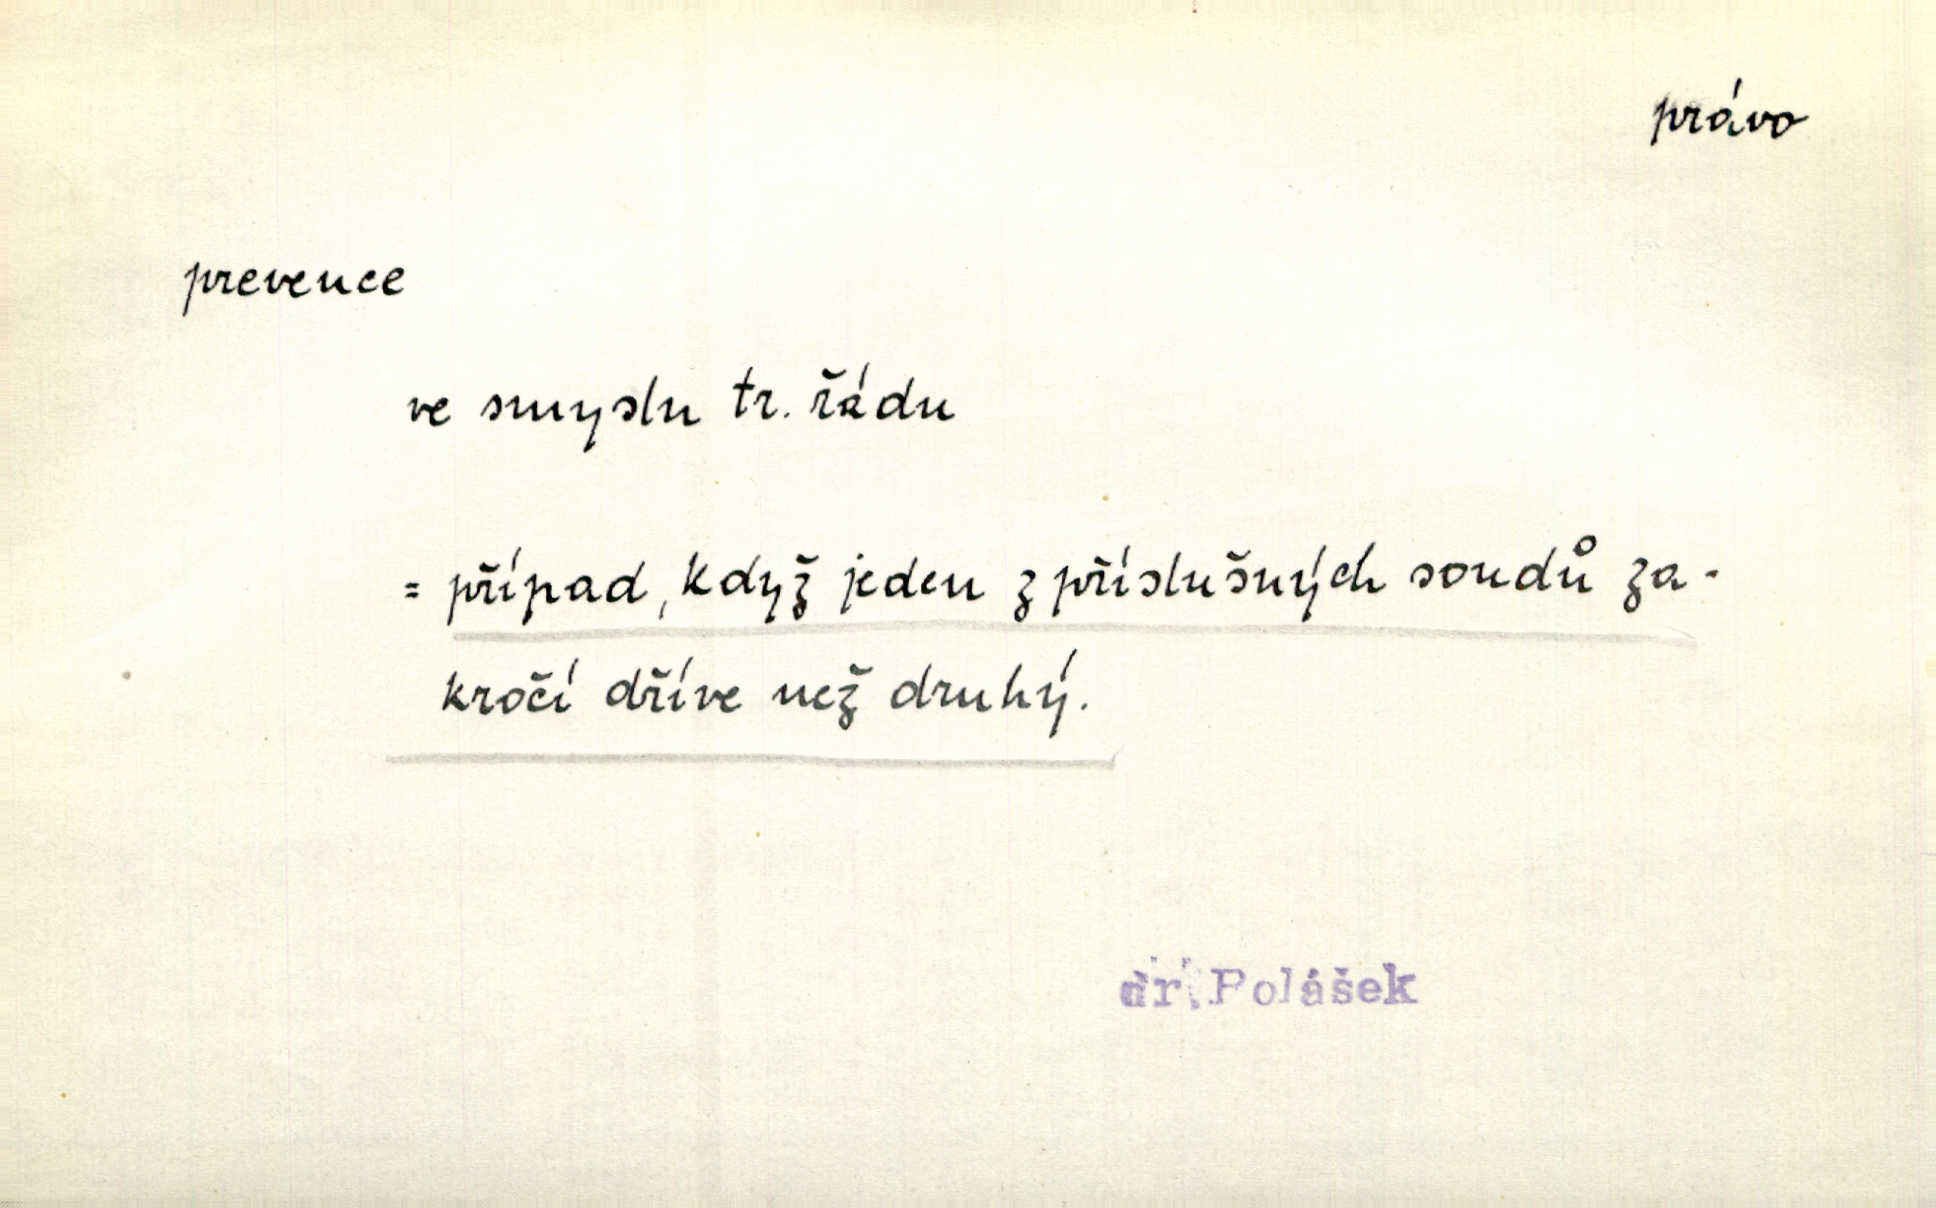 právo
prevence
ve smyslu tr. řádu
= případ, když jeden z příslušných soudů za-
kročí dříve než druhý.
dr. Polášek